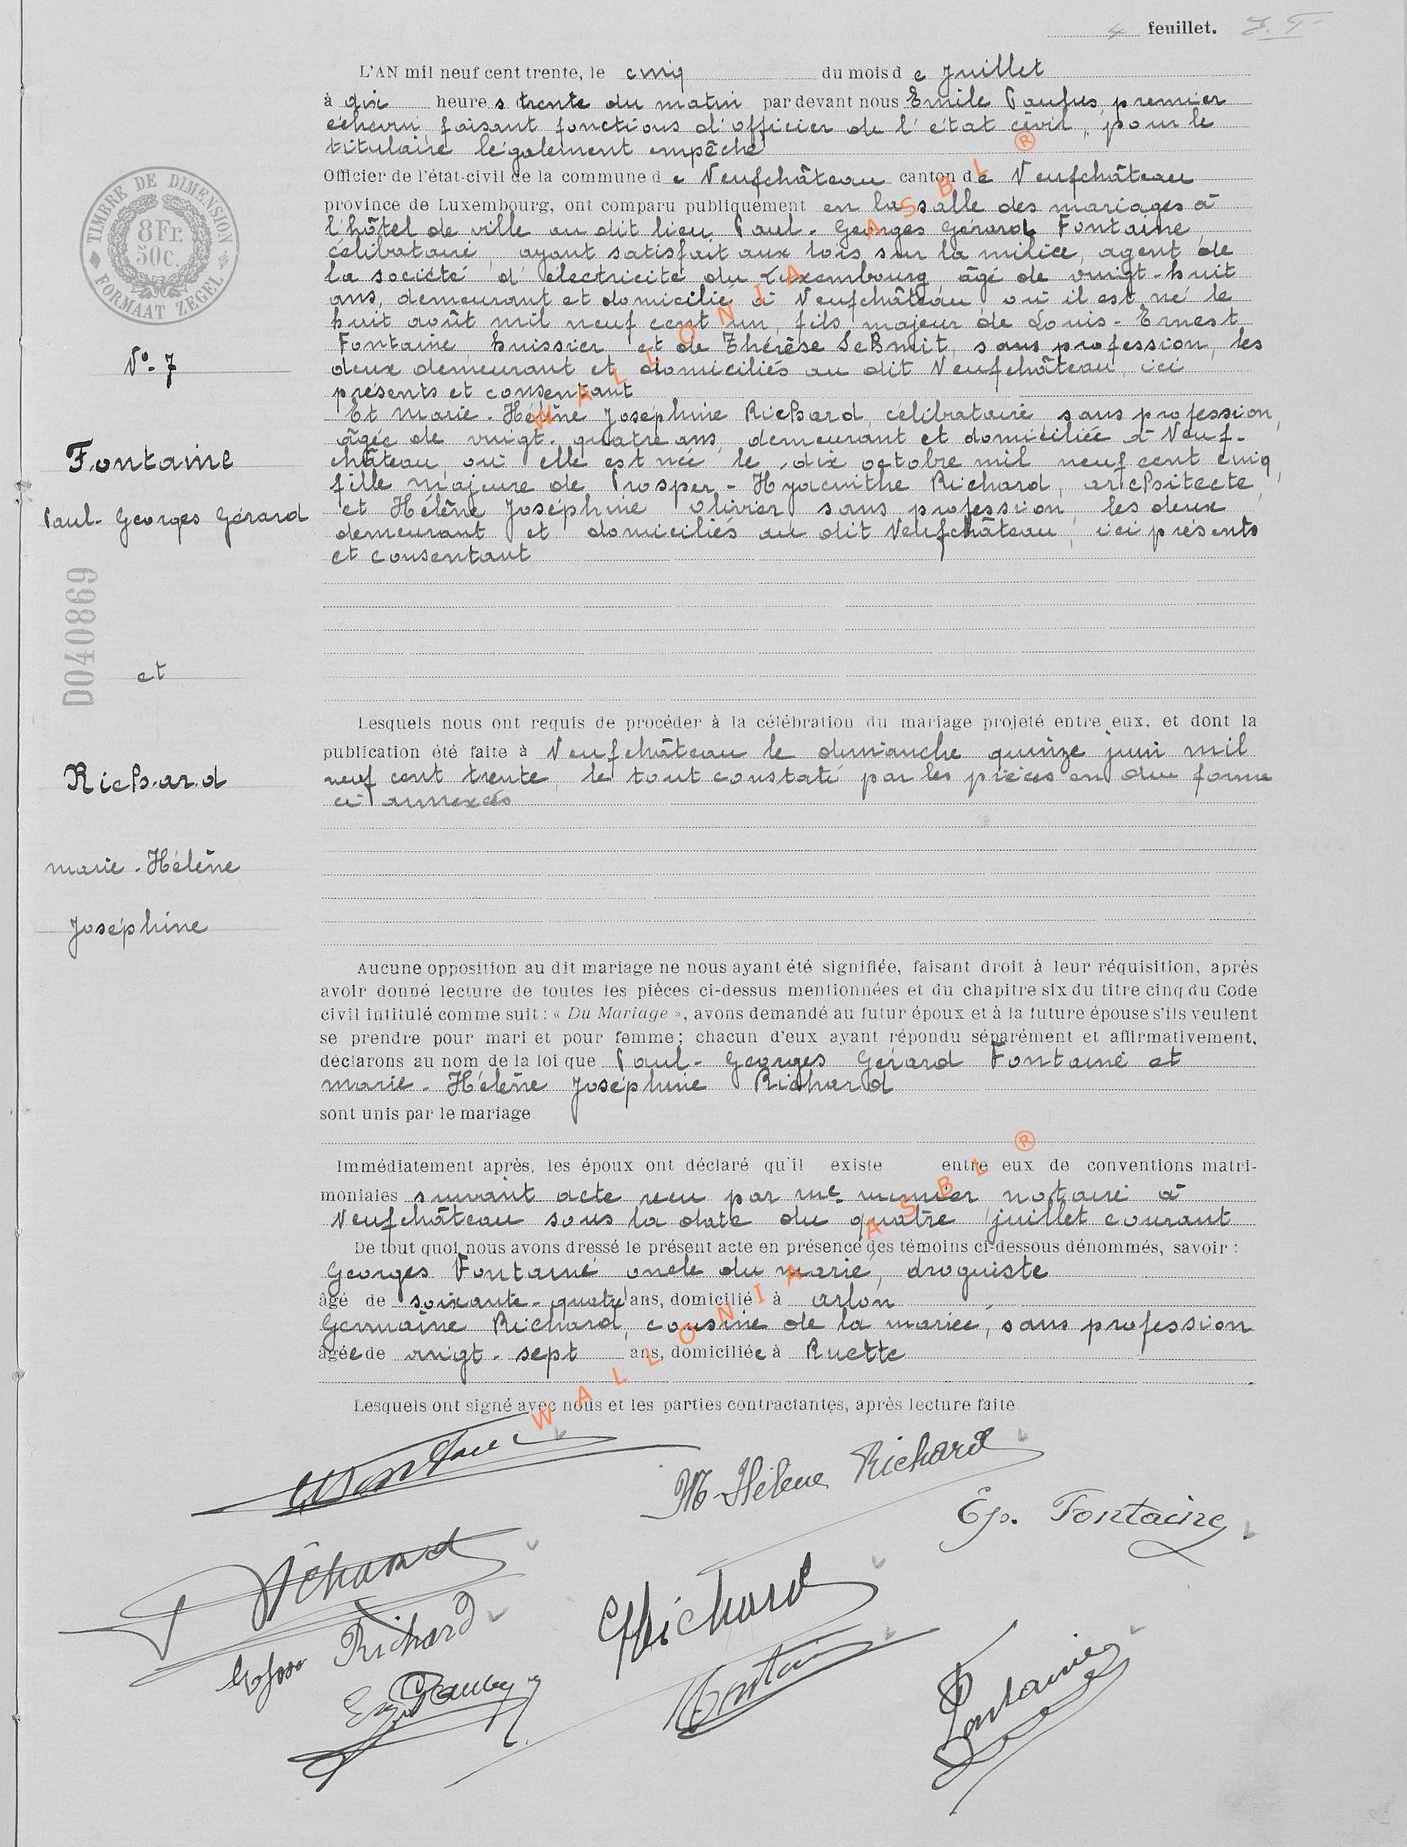 4 feuillet.
L'AN mil neuf cent trente, le cinq du mois d e Juillet
à dix heure s trente du matin par devant nous Emile Paulus, premier
échevin, faisant fonctions d'officier de l'état civil, pour le
titulaire légalement empêché
Officier de l'état-civil de la commune d e Neufchâteau canton de Neufchâteau
province de Luxembourg, ont comparu publiquement en la salle des mariages à
l'hôtel de ville au dit lieu Paul-Georges Gérard Fontaine,
célibataire, ayant satisfait aux lois sur la milice, agent de
la société d'électricité du Luxembourg, âgé de vingt-huit
ans, demeurant et domicilié à Neufchâteau où il est né le
huit août mil neuf cent un, fils majeur de Louis-Ernest
Fontaine, huissier et de Thérèse Schmit, sans profession, les
deux demeurant et domiciliés au dit Neufchâteau, ici
présents et consentant
Et Marie-Hélène Joséphine Richard, célibataire sans profession,
âgée de vingt-quatre ans, demeurant et domiciliée à Neuf-
château, où elle est née le dix octobre mil neuf cent cinq,
fille majeure de Prosper-Hyacinthe Richard, architecte,
et Hélène Joséphine Olivier sans profession, les deux
demeurant et domiciliés au dit Neufchâteau, ici présents
et consentant
TIMBRE DE DIMENSION
8Fr.
50c.
FORMAAT ZEGEL
No 7
Fontaine
Paul-Georges Gérard
D040869
et
Richard
Marie-Hélène
Joséphine
Lesquels nous ont requis de procéder à la célébration du mariage projeté entre eux, et dont la
publication été faite à Neufchâteau le dimanche quinze juin mil
neuf cent trente, le tout constaté par les pièces en due forme
ci annexées
Aucune opposition au dit mariage ne nous ayant été signifiée, faisant droit à leur réquisition, après
avoir donné lecture de toutes les pièces ci-dessus mentionnées et du chapitre six du titre cinq du Code
civil intitulé comme suit : « Du Mariage », avons demandé au futur époux et à la future épouse s'ils veulent
se prendre pour mari et pour femme; chacun d'eux ayant répondu séparément et affirmativement,
déclarons au nom de la loi que Paul-Georges Gérard Fontaine et
Marie-Hélène Joséphine Richard
sont unis par le mariage
Immédiatement après, les époux ont déclaré qu'il existe entre eux de conventions matri-
moniales suivant acte reçu par Me. Munier notaire à
Neufchâteau sous la date du quatre juillet courant
De tout quoi nous avons dressé le présent acte en présence des témoins ci-dessous dénommés, savoir :
Georges Fontaine oncle du marié, droguiste
âgé de soixante-quatre ans, domicilié à Arlon
Germaine Richard, cousine de la mariée, sans profession
âgée de vingt-sept ans, domiciliée à Ruette
Lesquels ont signé avec nous et les parties contractantes, après lecture faite
M-Hélène Richard
Ep. Fontaine
Richard
GRichard
Richard
Fontaine
Fontaine
WALLONIA ASBL ®
WALLONIA ASBL ®